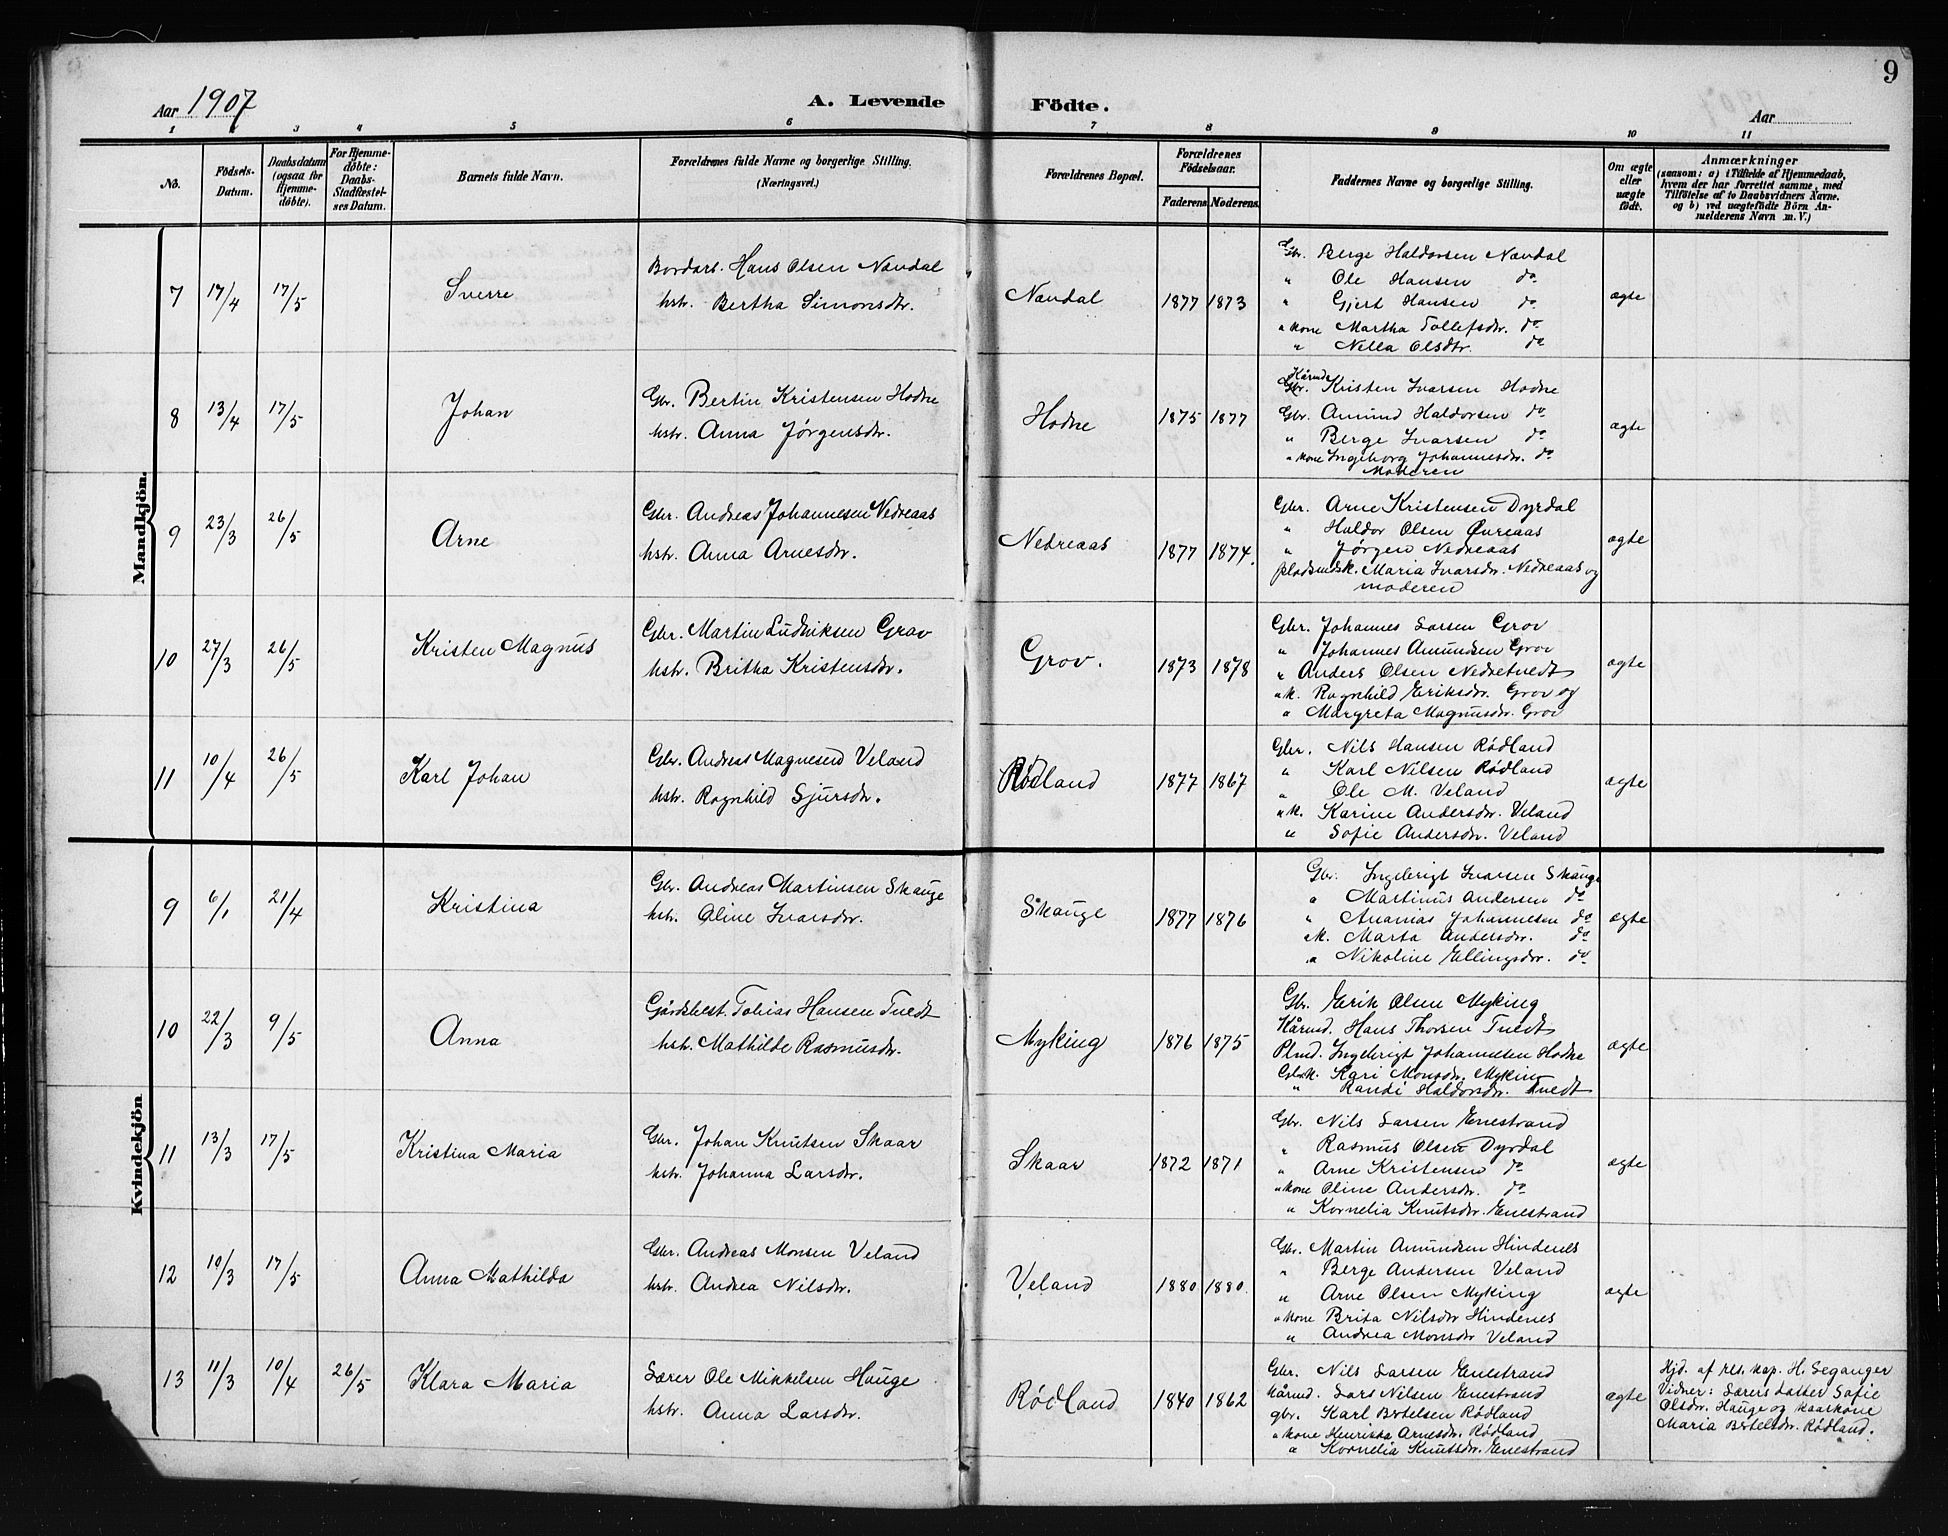 9
Aar 1907
A. Levende Födte.
Aar
1 2 3 4 5 6 7 8 9 10 11
No.
Födsels-
Datum.
Daabsdatum
(ogsaa for
Hjemme-
döbte).
For Hjemme-
döbte:
Daabs-
Stadfæstel-
ses Datum.
Barnets fulde Navn.
Forældrenes fulde Navne og borgerlige Stilling.
(Næringsvei.)
Forældrenes Bopæl.
Forældrenes
Födselsaar.
Faderens Moderens
Faddernes Navne og borgerlige Stilling.
Om ægte
eller
uægte
födt.
Anmærkninger
(saasom: a) i Tilfælde af Hjemmedaab,
hvem der har forrettet samme, med
Tilföielse af to Daabsvidners Navne.
og b) ved uægtefödte Börn An-
melderens Navn m. V.)
Mandkjön.
7 17/4 17/5 Sverre
Bordarb. Hans Olsen Nændal
hstr. Bertha Simonsdtr.
Nændal 1877 1873
Gbr. Berge Haldorsen Nændal
" Ole Hansen do
" Gjert Hansen do
" kone Martha Tollefsdr. do
" Nella Olsdtr. do
ægte
8 13/4 17/5 Johan
Gbr. Bertin Kristensen Hodne
hstr. Anna Jørgensdr.
Hodne 1875 1877
Kårmd.
Gbr. Kristen Ivarsen Hodne
Gbr. Amund Haldorsen do
" Berge Ivarsen do
" kone Ingeborg Johannesdr. do
Moderen
ægte
9 23/3 26/5 Arne
Gbr. Andreas Johannesen Nedreaas
hstr. Anna Arnesdr.
Nedreaas 1877 1874.
Gbr. Arne Kristensen Dyrdal
" Haldor Olsen Øvreaas
" Jørgen Nedreaas
pladsmdsk. Maria Ivarsdr. Nedreaas og
moderen
ægte
10 27/3 26/5 Kristen Magnus
Gbr. Martin Ludviksen Grov
hstr. Britha Kristensdr.
Grov. 1873 1878
Gbr. Johannes Larsen Grov
" Johannes Amundsen Grov
" Anders Olsen Nedretvedt
" k. Ragnhild Eriksdr. Grov og
" Margreta Magnusdr. Grov
ægte
11 10/4 26/5 Karl Johan
Gbr. Andreas Magnesen Veland
hstr. Ragnhild Sjursdr.
Rødland 1877 1867
Gbr. Nils Hansen Rødland
" Karl Nilsen Rødland
" Ole M. Veland
" k. Karine Andersdr. Veland
" Sofie Andersdr. Veland
ægte
Kvindekjön
9 6/1 21/4 Kristina
Gbr. Andreas Martinsen Skauge
hstr. Oline Ivarsdr.
Skauge 1877 1876
Gbr. Ingebrigt Ivarsen Skauge
" Martinus Andersen do
" Ananias Johannesen do
" k. Marta Andersdr. do
" Nikoline Ellingsdr. do
ægte
10 22/3 9/5 Anna
Gårdsbest. Tobias Hansen Tvedt
hstr. Mathilde Rasmusdr.
Myking 1876 1875
Gbr. Erik Olsen Myking
Kårmd. Hans Thorsen Tvedt
Plmd. Ingebrigt Johannesen Hodne
Gbr.k. Kari Monsdr. Myking
" Randi Haldorsdr. Tvedt
ægte
11 13/3 17/5 Kristina Maria
Gbr. Johan Knutsen Skaar
hstr. Johanna Larsdr.
Skaar 1872 1871
Gbr. Nils Larsen Enestrand
" Rasmus Olsen Dyrdal
" Arne Kristensen do
" kone Oline Andersdr. do
" Kornelia Knutsdr. Enestrand
ægte
12 10/3 17/5 Anna Mathilda
Gbr. Andreas Monsen Veland
hstr. Andrea Nilsdr.
Veland 1880 1880.
Gbr. Martin Amundsen Hindenes
" Berge Andersen Veland
" Arne Olsen Myking
" kone Brita Nilsdr Hindenes
" Andrea Monsdr Veland
ægte
13 11/3 10/4 26/5 Klara Maria
Lærer Ole Mikkelsen Hauge
hstr. Anna Larsdr.
Rødland 1840 1862
Gbr. Nils Larsen Enestrand
kårmd. Lars Nilsen Enestrand
gbr. Karl Bertelsen Rødland
" kone Henrikka Arnesdr. Rødland
" Kornelia Knutsdr. Enestrand
ægte
Hjd. af res. kap. H. Seganger
Vidner: Lærers datter Sofie
Olsdr. Hauge og kaarkone
Maria Bertelsdr. Rødland.